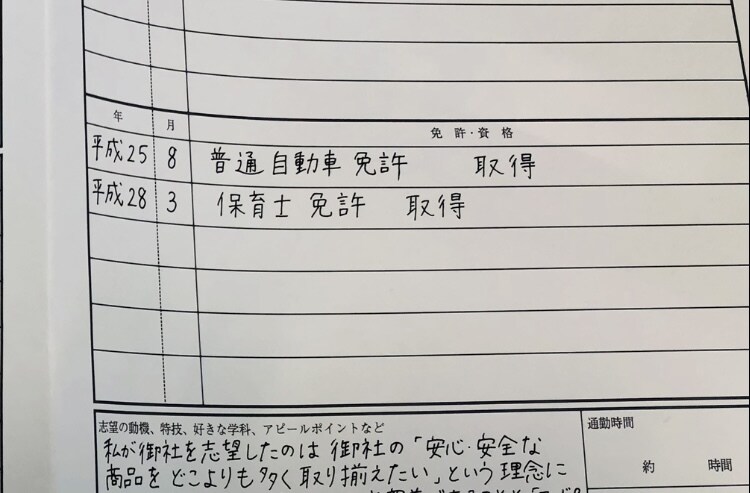 年 月 免許・資格
平成25 8 普通自動車免許 取得
平成28 3 保育士免許 取得
志望の動機、特技、好きな学科、アピールポイントなど
私が御社を志望したのは御社の「安心・安全な
商品をどこよりも多く取り揃えたい」という理念に
通勤時間
約 時間